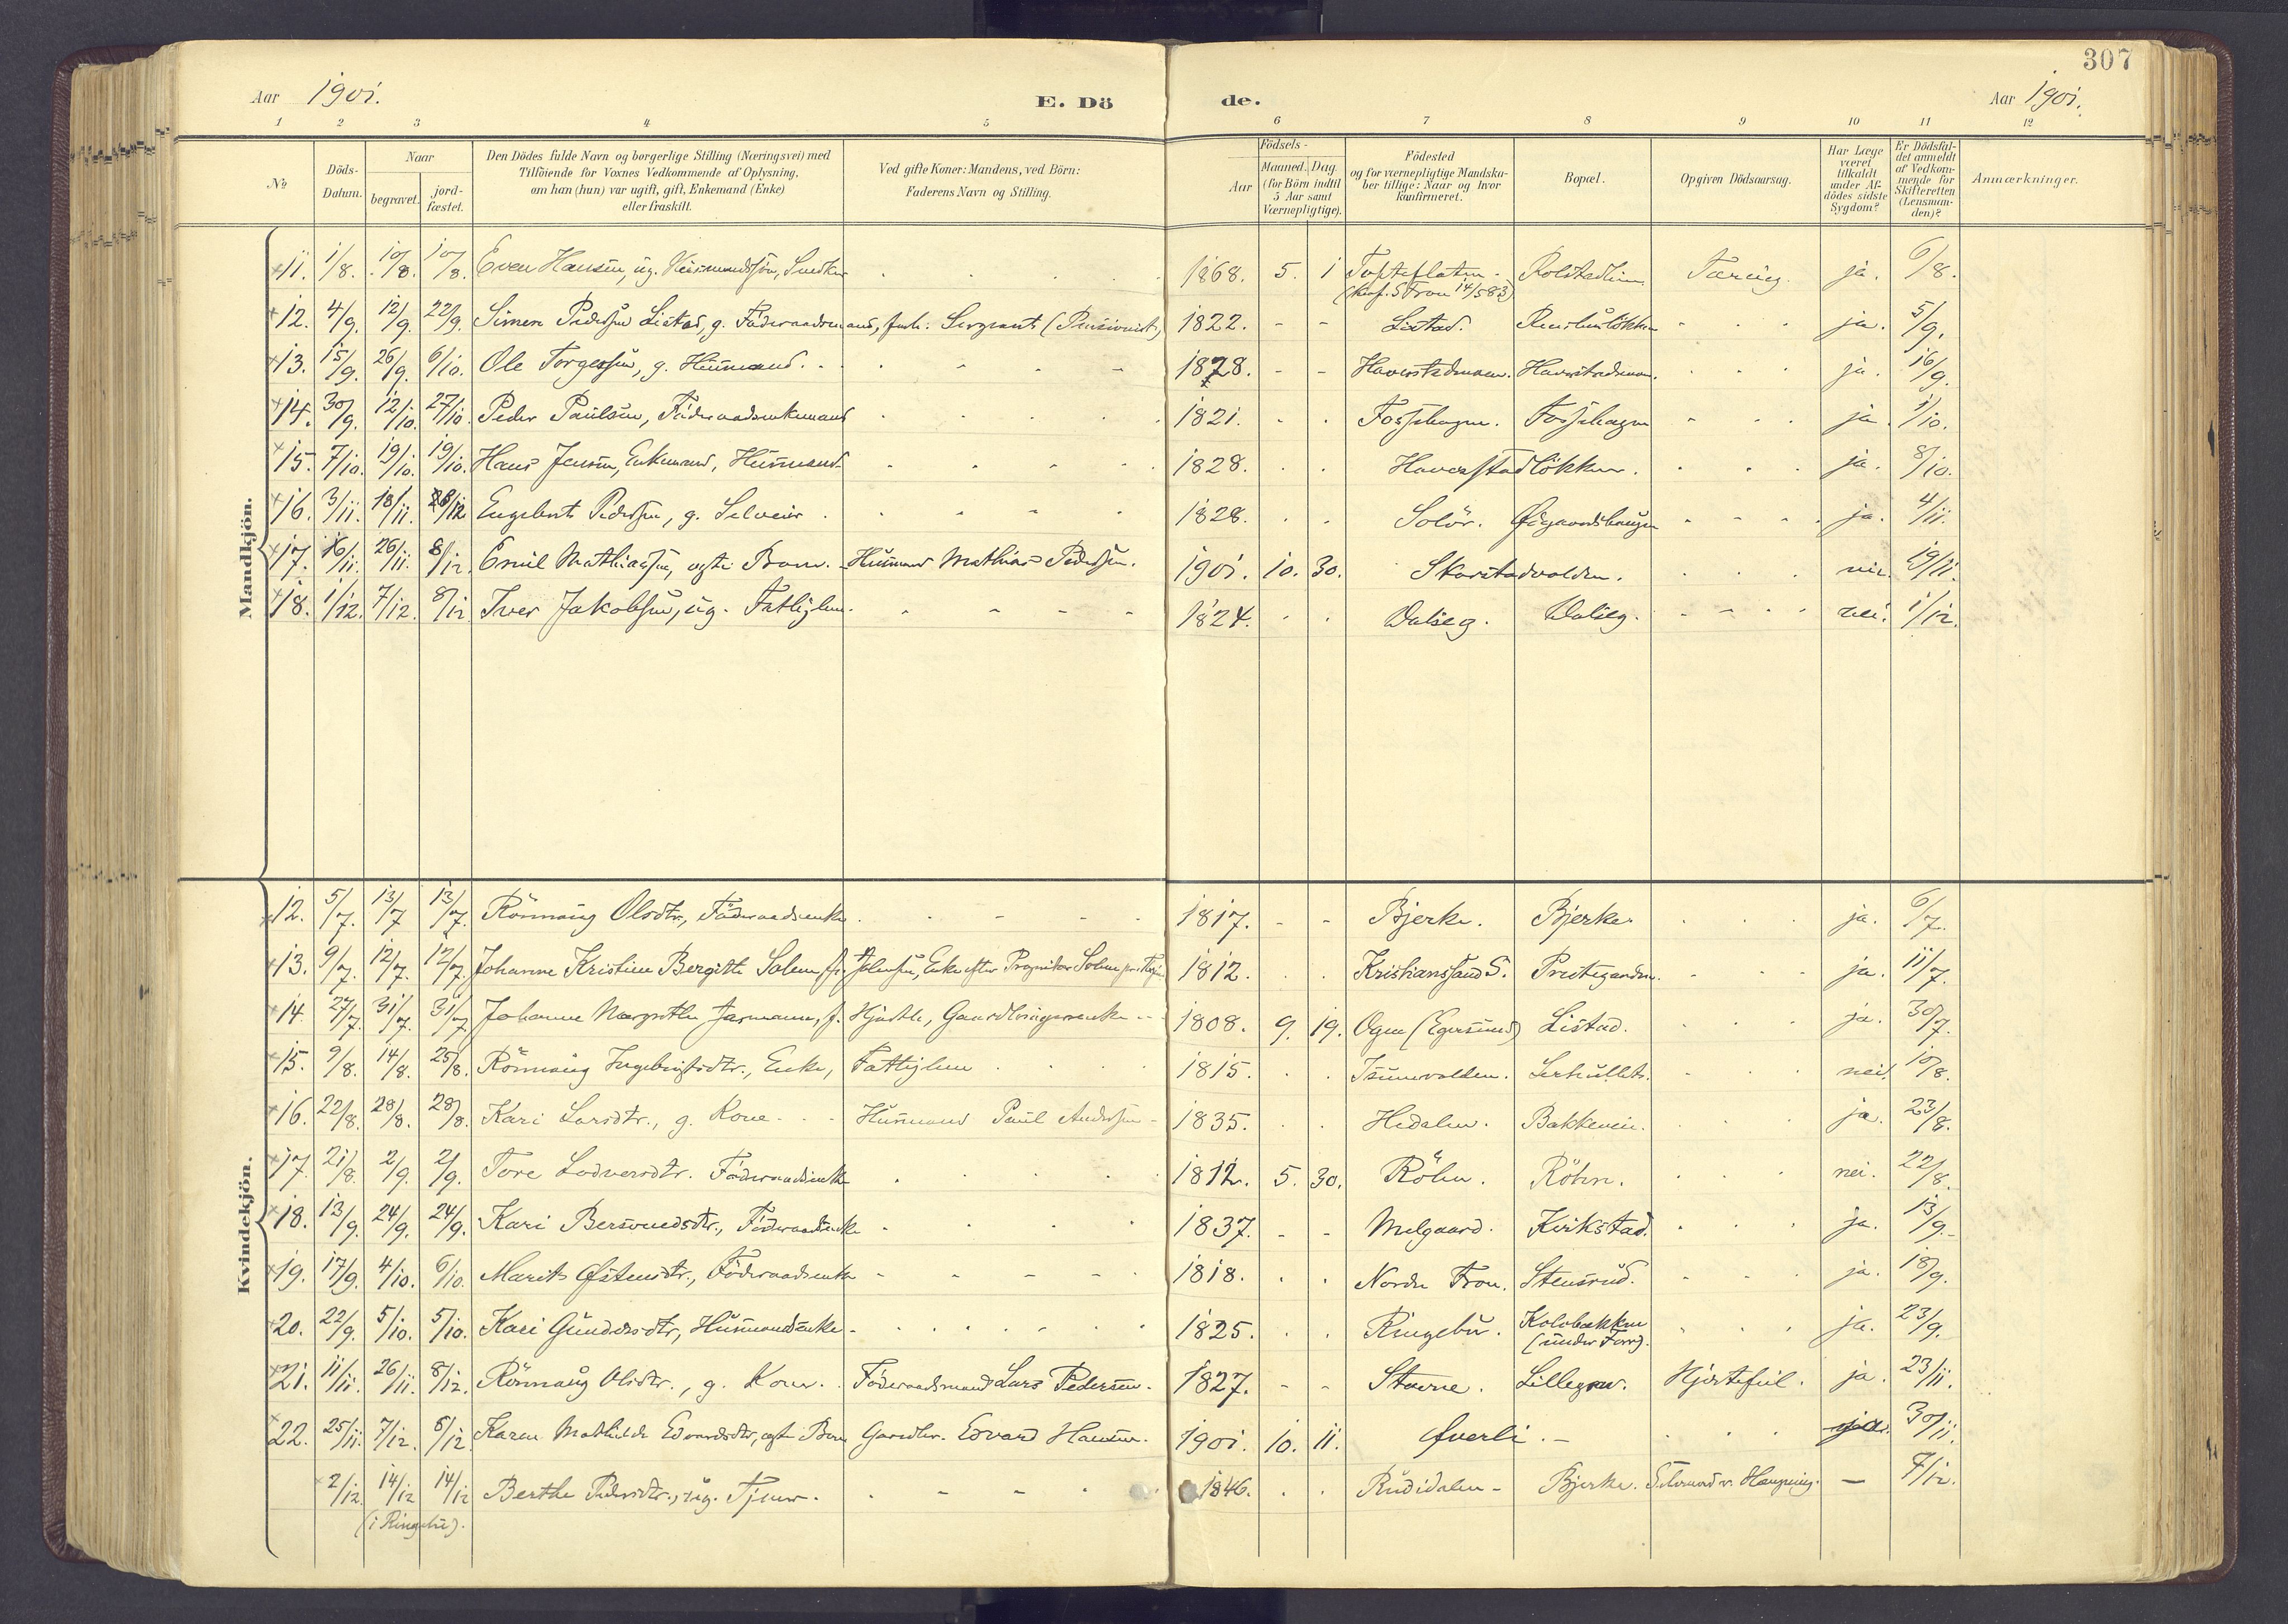 307
Aar 1901. E. Dö de. Aar 1901.
1 2 3 4 5 6 7 8 9 10 11 12
No
Döds-Datum.
Naar begravet. jordfæstet.
Den Dödes fulde Navn og borgerlige Stilling (Næringsvei) med
Tilföiende for Voxnes Vedkommende af Oplysning,
om han (hun) var ugift, gift, Enkemand (Enke)
eller fraskilt.
Ved gifte Koner: Mandens, ved Börn:
Faderens Navn og Stilling.
Födsels-
Aar Maaned. Dag.
(for Börn indtil
5 Aar samt
Værnepligtige).
Födested
og for værnepligtige Mandskaber tillige: Naar og hvor
konfirmeret.
Bopæl.
Opgiven Dödsaarsag.
Har Læge
været
tilkaldt
under Afdödes sidste
Sygdom?
Er Dödsfaldet anmeldt
af Vedkommende for
Skifteretten
(Lensmanden)?
Anmærkninger.
Mandkjön.
11. 1/8. 10/8. 10/8. Even Hansen, ug. Husmandssön, Snedker 1868. 5. 1 Tofteflaten. Rolstadlien. Tæring. ja. 6/8.
(Konf. S. Fron 14/5 83)
12. 4/9. 12/9. 22/9. Simen Pedersen Listad, g. Föderaadsmand, forh. Sergeant (Pensionist) 1822. - - Listad. ja. 5/9.
13. 15/9. 26/9. 6/10. Ole Torgersen, g. Husmand. 1828. - - Haverstadmoen. Haverstadmoen. ja. 16/9.
14. 30/9. 12/10. 27/10. Peder Paulsen, Föderaadsenkemand 1821. Fossehagen. Fossehagen ja. 1/10.
15. 7/10. 19/10. 19/10. Hans Jensen, Enkemand, Husmand 1828. Haverstadlökken. ja. 8/10.
16. 3/11. 18/11. 26/12 Engebret Pedersen, g. Selveier 1828. Solör. Øigaardshaugen ja. 4/11.
17. 16/11. 26/11. 8/12. Emil Mathiassen, egte Barn. Husmand Mathias Pedersen. 1901. 10. 30. Skarstadvolden. nei. 19/11.
18. 1/12. 7/12. 8/12 Iver Jakobsen, ug. Fattiglem. 1824. Walseg. Walseg. nei. 1/12.
Kvindekjön.
12. 5/7. 13/7 13/7. Rönnaug Olsdtr, Föderaadsenke. 1817. - - Bjerke. Bjerke. ja. 6/7.
13. 9/7. 12/7. 12/7. Johanne Kristine Bergitte Solem, f. Enke efter Proprietær Solem 1812. Kristianssand S. Prestegaarden. ja. 11/7.
14. 27/7. 31/7. 31/7 Johanne Margrethe Jarmann, f. Hjorthe, Gaardbrugerenke 1808. 9. 19. Ogne (Egersund) Listad. ja. 30/7.
15. 9/8. 14/8. 25/8. Rönnaug Ingebrigtsdtr., Enke, Fattiglem 1815. Isumvolden. nei. 10/8.
16. 22/8. 28/8. 28/8. Kari Larsdtr., g. Kone. Husmand Paul Andersen 1835. Hedalen. Bakkeneie. ja. 23/8.
17. 21/8. 2/9. 2/9. Tore Lodversdtr. Föderaadsenke 1812. 5. 30. Röhn. Röhn. nei. 22/8.
18. 13/9. 24/9. 24/9. Kari Bersvendsdtr., Föderaadsenke 1837. - - Melgaard. Kirkstad. ja. 13/9.
19. 17/9. 4/10. 6/10. Marit Østensdtr., Föderaadsenke 1818. Nordre Fron. Stensrud. ja. 18/9.
20. 22/9. 5/10. 5/10. Kari Gundersdtr, Husmandsenke 1825. Ringebu. Kolobakken ja. 23/9.
(under Forr).
21. 11/11. 26/11. 8/12. Rönnaug Olsdtr., g. Kone. Föderaadsmand Lars Pedersen. 1827. - - Stavne. Hjertefeil. ja. 23/11.
22. 25/11. 7/12. 8/12 Karen Mathilde Edvardsdtr, egte Barn Gaardbr. Edvard Hansen. 1901. 10. 11. Øverli. ja. 30/11.
2/12. 14/12 14/12 Berthe Pedersdtr., ug. Tjener. 1846. Rudidalen Bjerke. Selvmord v. Hængning. - 7/12.
(i Ringebu).